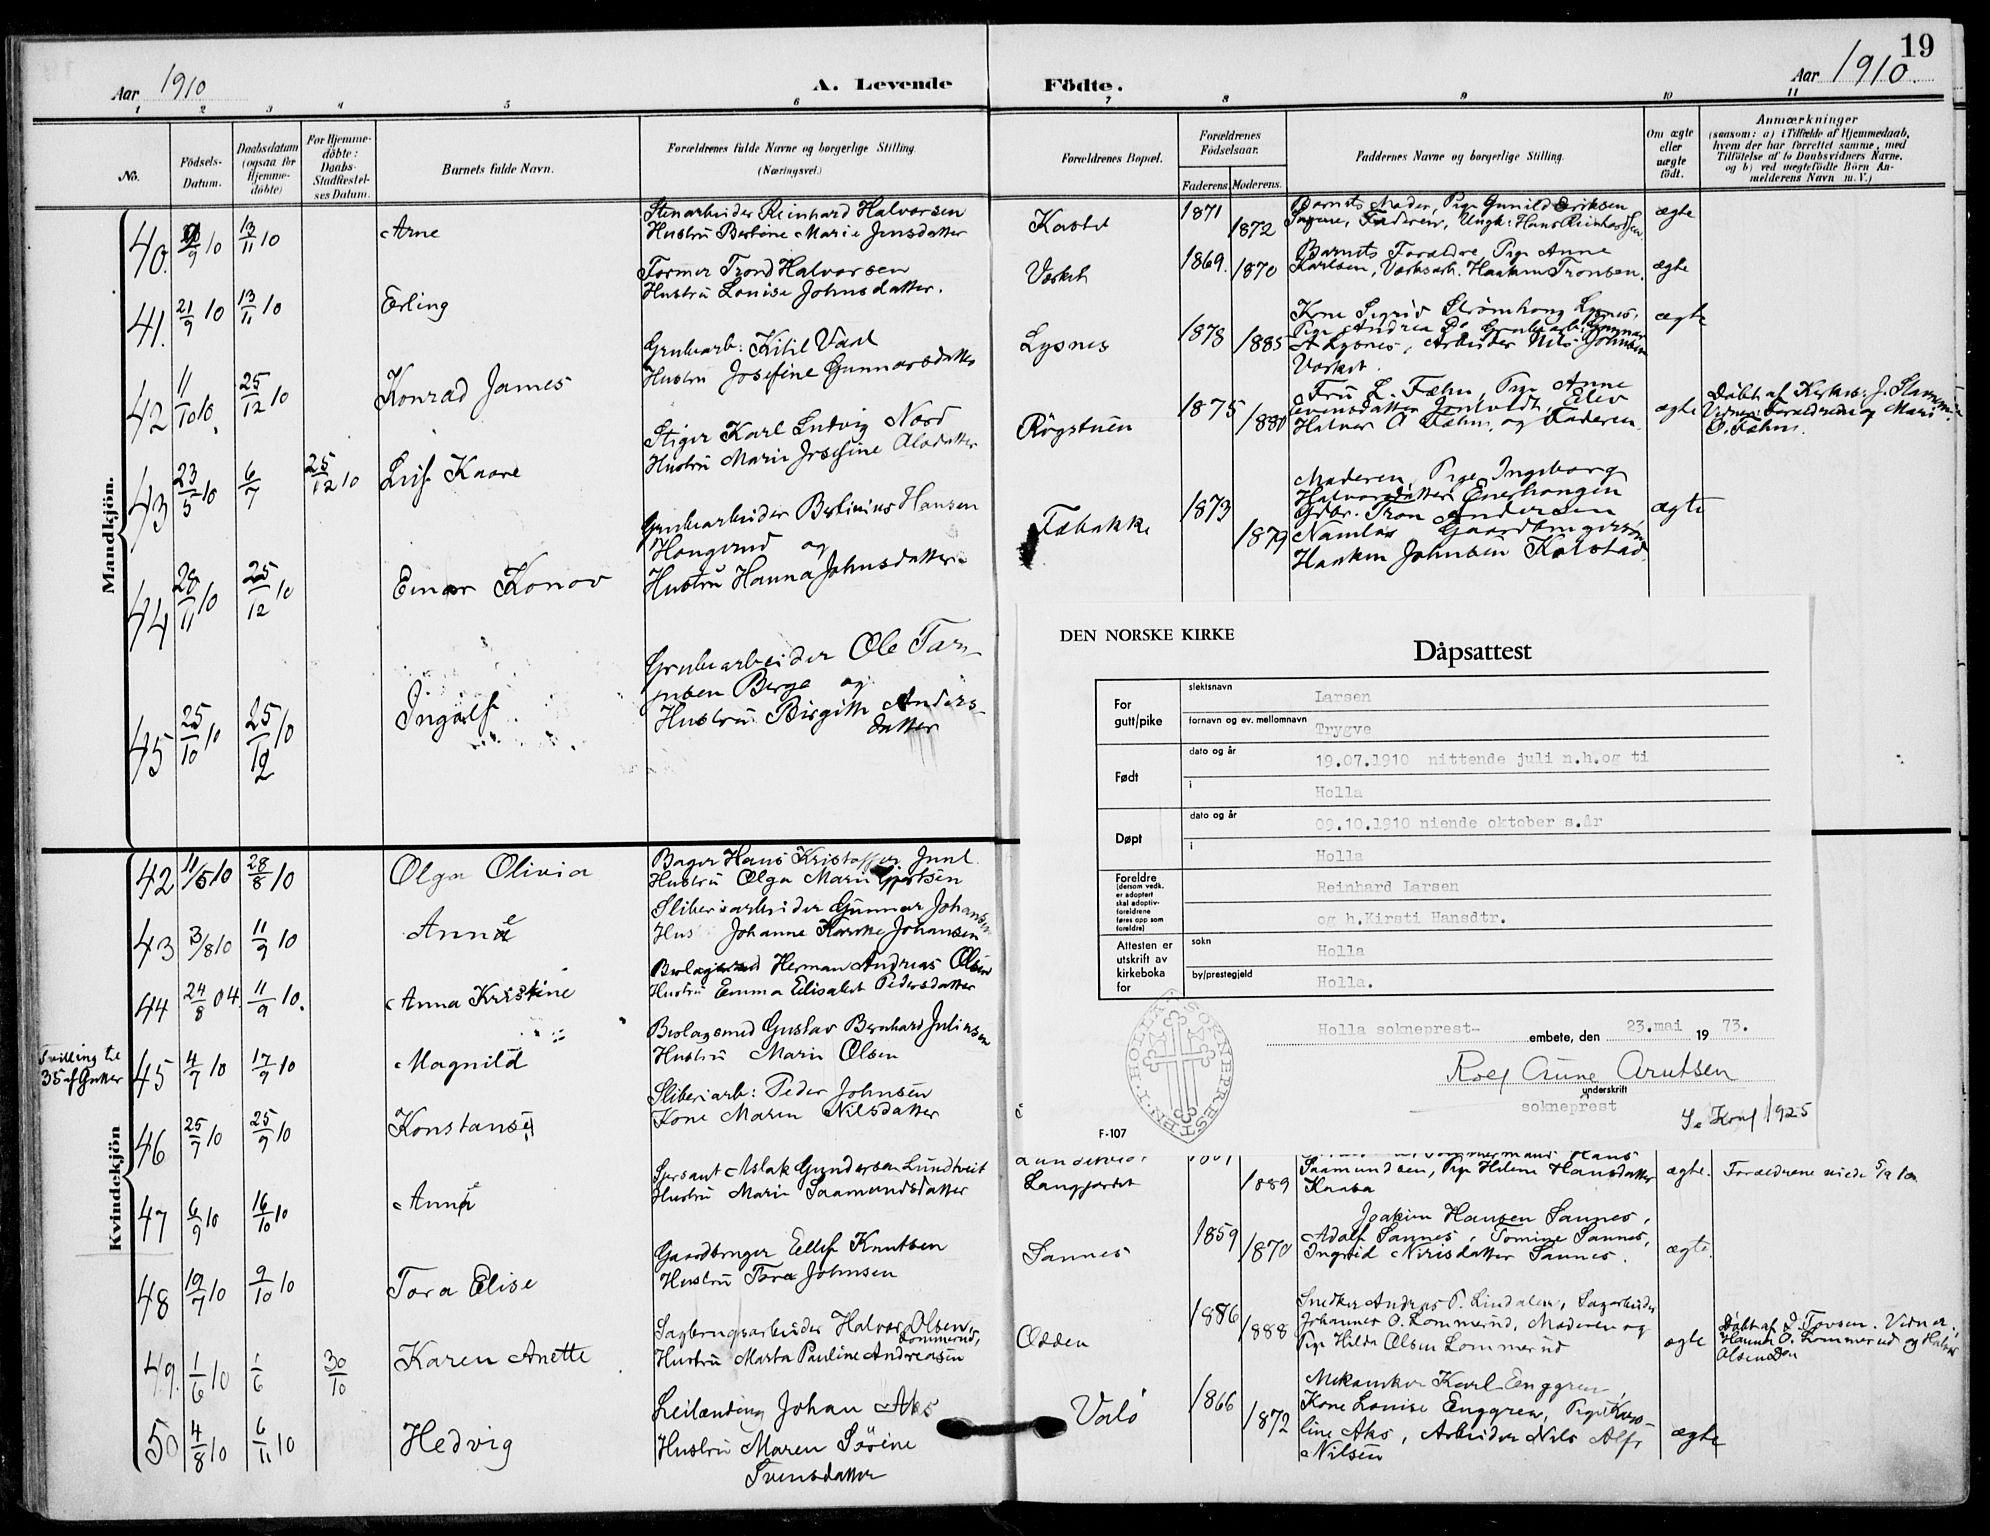 19
Aar 1910
A. Levende Födte.
Aar 1910.
1 2 3 4 5 6 7 8 9 10 11
No.
Födsels-
Datum.
Daabsdatum
(ogsaa for
Hjemme-
döbte)
For Hjemme-
döbte:
Daabs-
Stadfæstel-
ses Datum.
Barnets fulde Navn.
Forældrenes fulde Navne og borgerlige Stilling.
(Næringsvei.)
Forældrenes Bopæl.
Forældrenes
Födselsaar.
Faderens. Moderens.
Faddernes Navne og borgerlige Stilling.
Om ægte
eller
uægte
födt.
Anmærkninger
(saasom: a) i Tilfælde af Hjemmedaab,
hvem der har forrettet samme, med
Tilföielse af to Daabsvidners Navne,
og b) ved uægtefödte Börn An-
melderens Navn m. V.)
Mandkjön.
40. 9/9 10 13/11 10 Arne
Stenarbeider Reinhard Halvorsen
Hustru Bertine Marie Jensdatter
1871
1872
Barnets Moder, Pige Gunild Eriksen
ægte
41. 21/9 10 13/11 10 Erling
Former Trond Halvorsen
Hustru Lovise Johnsdatter.
Værket
1869. 1870
Barnets Forældre, Pige Anne
Karlsen, Værksarb. Haaken Tronsen.
ægte
42 11/10 10. 25/12 10 Konrad James
Grubearb: Kitil Vaal
Hustru Josefine Gunnarsdatter
Lysnes
1878 1885
Kone Sigrid Strømhoug Lysnes,
A Lysnes, Arbeider Nils Johnsen
Værket.
ægte
43 23/5 10 6/7 25/12 10 Leif Kaare
Stiger Karl Ludvig Nord
Hustru Marie Josefine Olsdatter
Rögstuen
1875 1880
Fru L. Fæhn, Pige Anne
Halvor O Fæhn, og Faderen.
ægte
Vidner: Forældrene og Marie
O. Fæhn.
44 28/11 10 25/12 10 Einar Konov
Grubearbeider Bertinius Hansen
Hougerud og
Hustru Hanna Johnsdatter
Fæbakke
1873
1879
Moderen, Pige Ingeborg
Halvorsdatter Enerhougen
Gdbr. Tron Andersen
Namløs Gaardbrugersøn
Haaken Johnsen Kolstad
ægte
45 25/10 10 25/12 10 Ingolf
Grubearbeider Ole Tarn-
Berge og
Hustru Birgitte Anders-
datter
DEN NORSKE KIRKE
Dåpsattest
For
gutt/pike
slektsnavn
Larsen
fornavn og ev. mellomnavn
Trygve
Født
dato og år
19.07.1910 nittende juli n.h.og ti
i
Holla
Døpt
dato og år
09.10.1910 niende oktober s.år
i
Holla
Foreldre
(dersom vedk.
er adoptert
skal adoptiv-
foreldrene
føres opp som
foreldre)
Reinhard Larsen
og h.Kirsti Hansdtr.
Attesten er
utskrift av
kirkeboka
for
sokn
Holla
by/prestegjeld
Holla.
Holla sokneprest- embete, den 23.mai 19 73.
Rolf Aune Arntsen
underskrift
sokneprest
SOKNEPRESTEN I HOLLA
F-107
Se Konf 1925
Kvindekjön
42 11/5 10 28/8 10 Olga Olivia
Bager Hans Kristoffer Juul
Hustru Olga Marie Gjertsen
43 3/8 10 11/9 10 Anne
Sliberiarbeider Gunnar Johansen
Johanne Karoke Johansen
44 24/8 04 11/9 10. Anna Kristine
Herman Andreas Olsen
Hustru Emma Elisabet Pedersdatter
Tvilling til
35 af Gutter
45 4/7 10 17/9 10 Magnild
Bolagsmed Gustav Bernhard Juliussen
Hustru Marie Olsen
46 25/7 10 25/9 10 Konstanse
Sliberiarb: Peder Johnsen
Kone Maren Nilsdatter
47 6/9 10 16/10 10 Anne
Sersant Aslak Gundersen Lundtveit
Hustru Marie Saamundsdatter
Langfjordet
1889
Saamundsen, Pige Helene Hansdatter
Kaasa
ægte. Forældrene viede 5/9 10
48 19/7 10 9/10 10 Tora Elise
Gaardbruger Ellef Knutsen
Hustru Tora Johnsen
Sannes
1859
1870
Joakim Hansen Sannes,
Adolf Sannes, Tomine Sannes,
Ingrid Nirisdatter Sannes.
ægte.
49. 1/6 10 1/6 30/10 Karen Anette
Sagbrugsarbeider Halvor Olsen
Lommerud,
Hustru Marta Pauline Andreasen
Odden
1886
1888
Snedker Andreas P. Lindalen, Sagarbeider
Johannes O. Lommerud, Moderen og
Pige Hilda Olsen Lommerud
ægte
Döbt af J. Tovsen. Vidner,
Hans O. Lommerud og Halvor
Olsen Do
50 4/8 10 6/11 10 Hedvig
Leilænding Johan Aks
Hustru Maren Sörine
Svensdatter
Valö
1866
1872
Mekaniker Karl Enggren,
Kone Louise Enggren, Pige Karo-
line Aks, Arbeider Nils Alfr
Nilsen
ægte